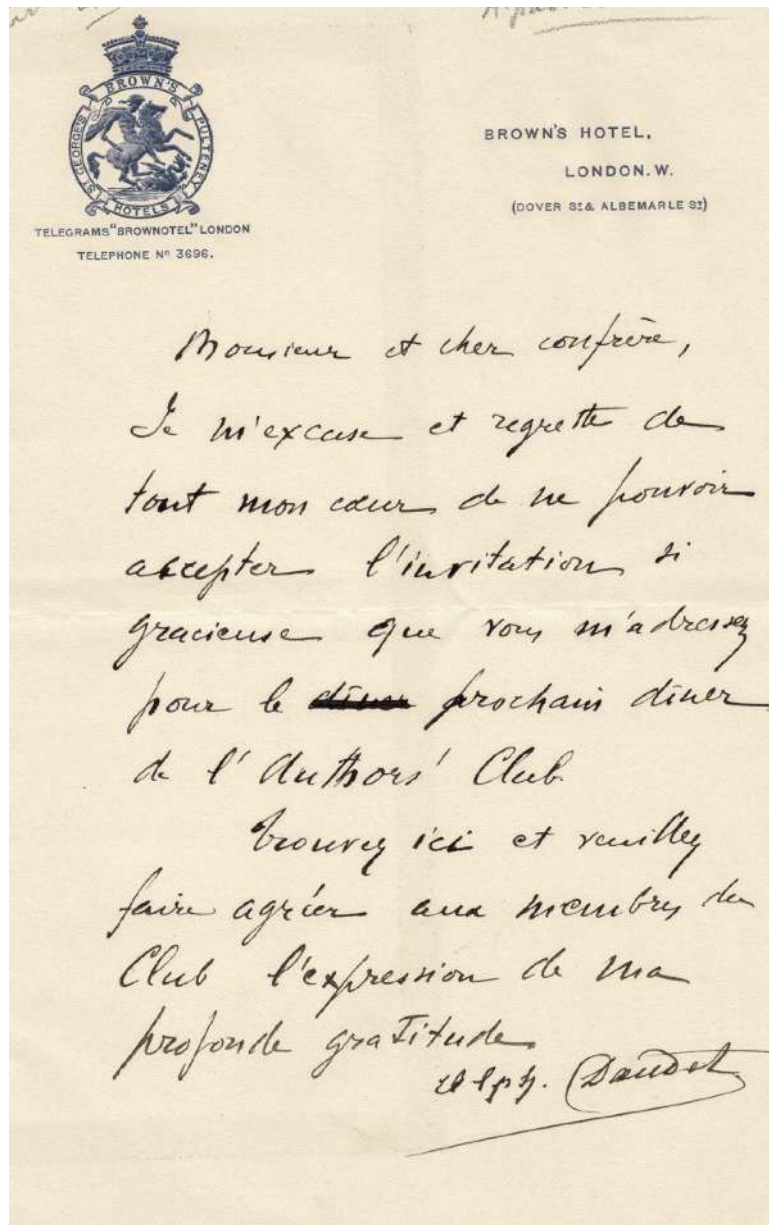 BROWN'S
ST GEORGE'S
PULTENEY
HOTELS
TELEGRAMS "BROWNOTEL" LONDON
TELEPHONE Nº 3696.
BROWN'S HOTEL,
LONDON. W.
(DOVER ST & ALBEMARLE ST)
Monsieur et cher confrère,
Je m'excuse et regrette de
tout mon cœur de ne pouvoir
accepter l'invitation si
gracieuse que vous m'adressez
pour le diner prochain diner
de l'Authors' Club
Trouvez ici et veuillez
faire agréer aux membres du
Club l'expression de ma
profonde gratitude
Alph. Daudet